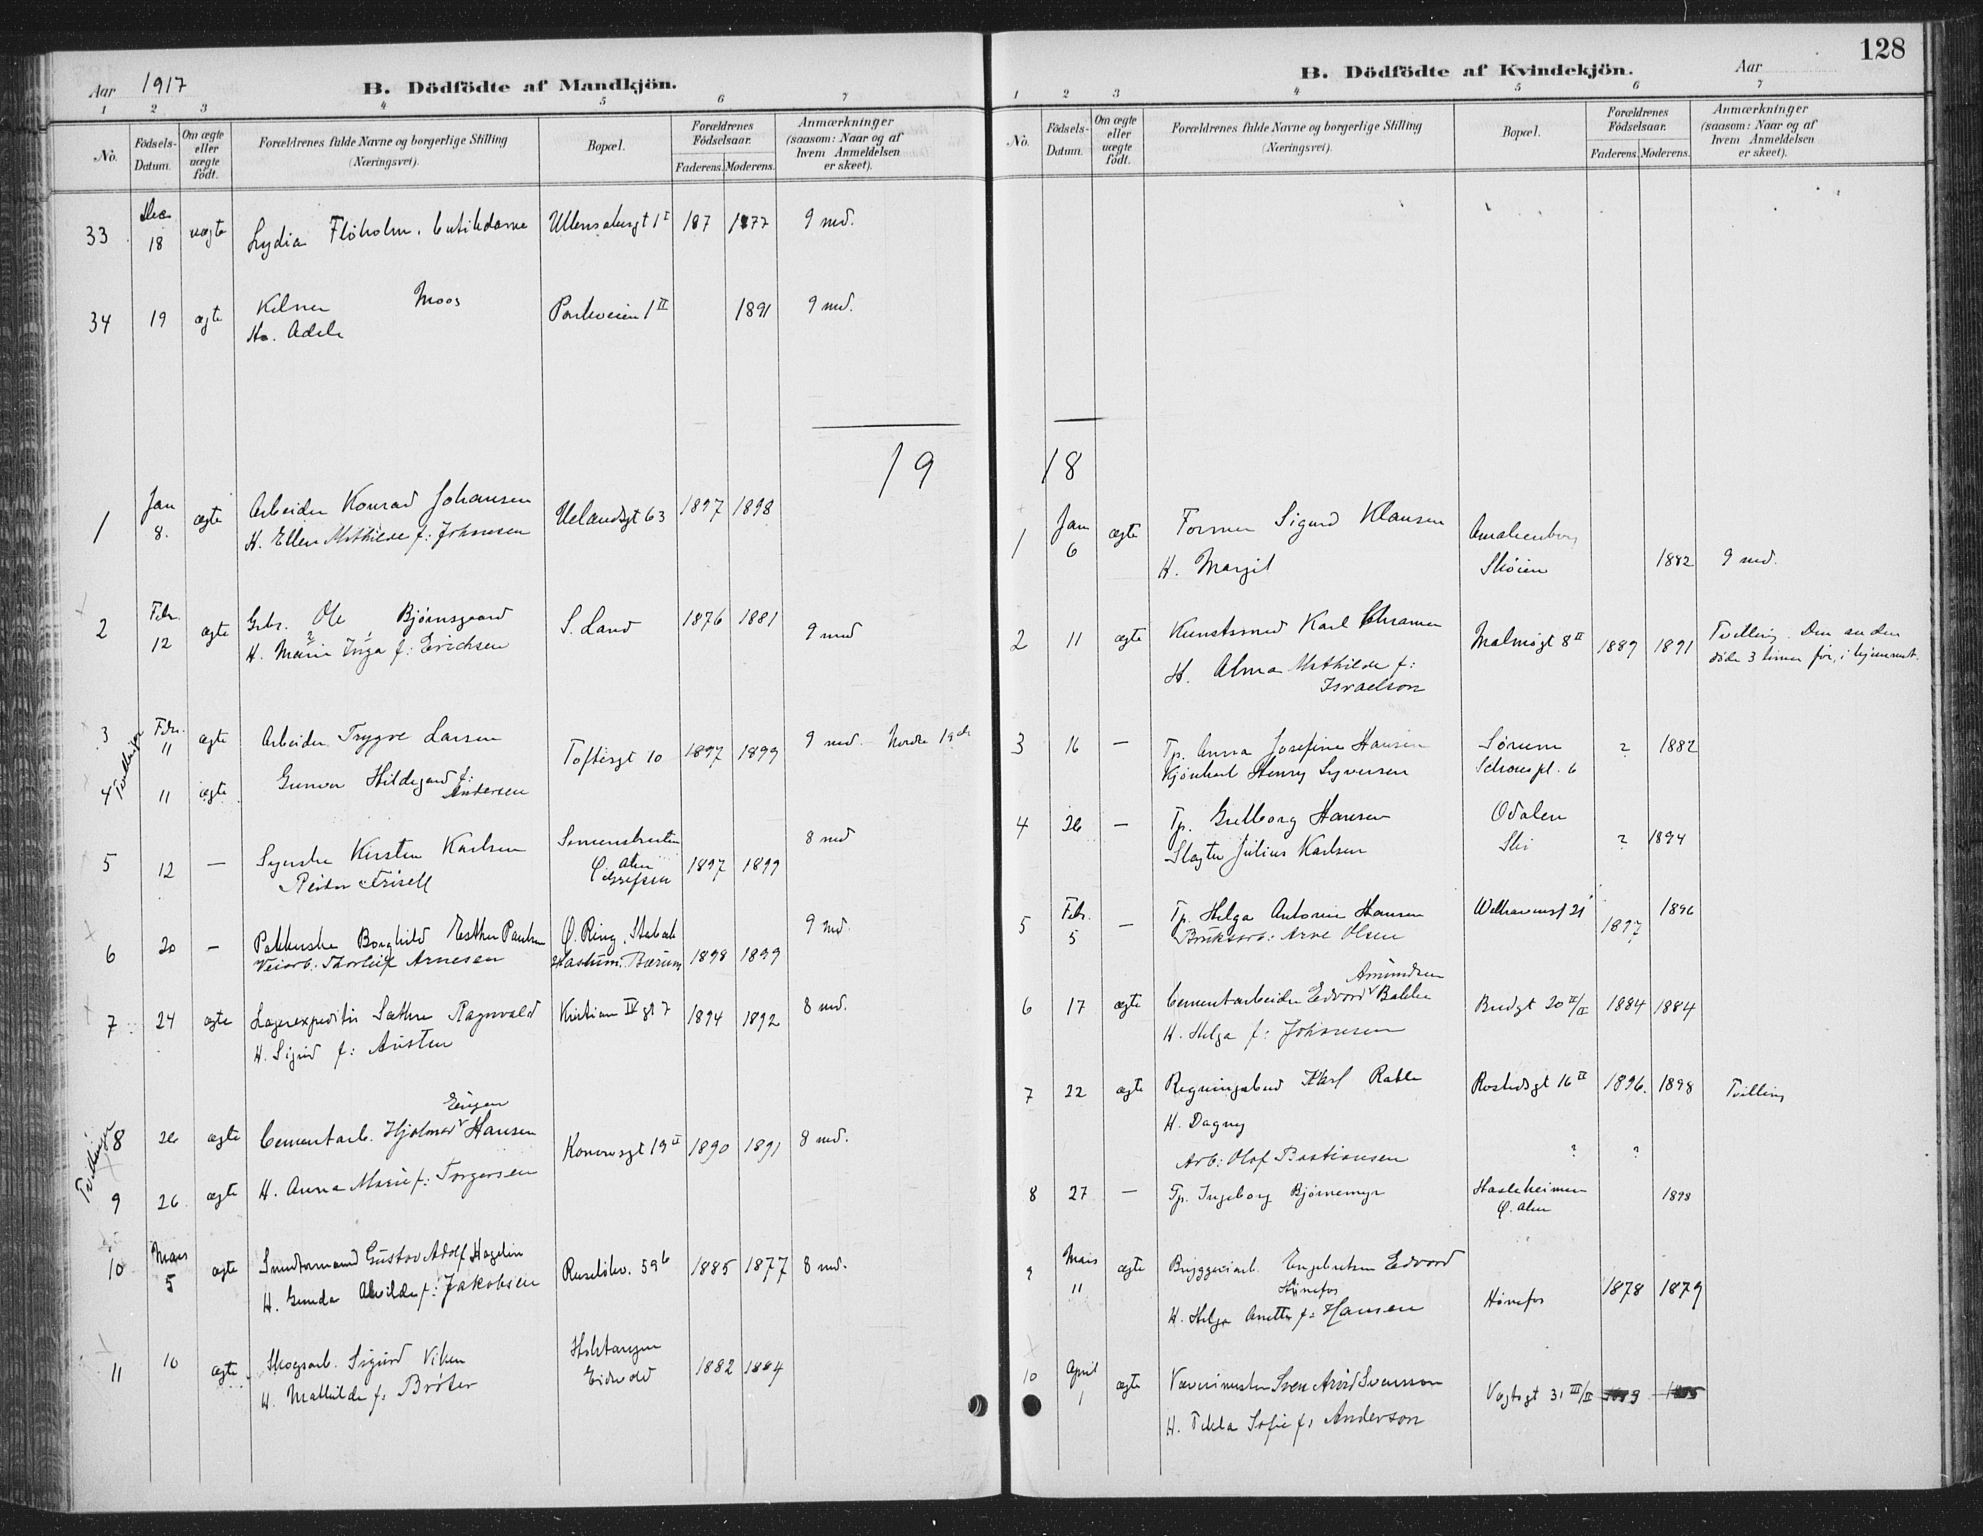 128
Aar 1917
B. Dödfödte af Mandkjön.
1 2 3 4 5 6 7
No.
Födsels-Datum.
Om ægte eller uægte födt.
Forældrenes fulde Navne og borgerlige Stilling (Næringsvei).
Bopæl.
Forældrenes Födselsaar.
Faderens. Moderens.
Anmærkninger (saasom: Naar og af hvem Anmeldelsen er skeet).
33 Dec 18 uægte Lydia Fløholm, 187 1877 9 md.
34 19 ægte Moos Parkveien 1 II 1891 9 md.
H. Adele
19
1 Jan 8. ægte Arbeider Konrad Johansen Uelandsgt 63 1897 1898
H. Ellen Mathilde f: Johnsen
2 Febr. 12 ægte Grbr. Ole Bjørnsgaard S. Land 1876 1881 9 md
H. Marie Inga f: Erichsen
Tvillinger
3 Febr. 11 ægte Arbeider Trygve Larsen Toftesgt 10 1897 1899 9 md.
4 11 ægte Gunvor Hildegard f: Andersen
5 12 — Syerske Kirsten Karlsen 1897 1899 8 md
Ø. Aker Grefsen
6 20 — Pakkerske Borghild Esther Paulsen Ø. Ring, Stabæk 1898 1899 9 md.
Veiarb. Thorleif Arnesen Haslum, Bærum
7 24 ægte Lagerexpeditør Sæthre Ragnvald Kristian IV gt 7 1894 1892 8 md.
H. Sigrid f: Austen
Tvillinger
Eugen
8 26 ægte Cementarb. Hjalmar Hansen 1890 1891 8 md.
9 26 ægte H. Anna Marie f: Torgersen
10 Mars 5 ægte Gustav Adolf Hagelin Ruseløkv. 59 b 1885 1877 8 md.
H. Gunda Alvilde f: Jakobsen
11 10 ægte Skogsarb. Sigurd Viken 1882 1884
Eidsvold
H. Mathilde f: Bröter
B. Dödfödte af Kvindekjön.
Aar
1 2 3 4 5 6 7
No.
Födsels-Datum.
Om ægte eller uægte födt.
Forældrenes fulde Navne og borgerlige Stilling (Næringsvei).
Bopæl.
Forældrenes Födselsaar.
Faderens. Moderens.
Anmærkninger (saasom: Naar og af hvem Anmeldelsen er skeet).
18
1 Jan 6 ægte Former Sigurd Klausen Amalienborg
H. Margit Skøien 1882 9 md.
2 11 ægte Kunstsmed Karl Malmøgt 8 II 1889 1891 Tvilling. Den anden
H. Alma Mathilde f: døde 3 timer før, i hjemmet.
Israelson
3 16 — Tp. Anna Josefine Hansen Sørum ? 1882
Kjørekarl Henry Syversen Schouspl. 6
4 26 — Tp. Gudborg Hansen Odalen
Slagter Julius Karlsen Ski ? 1894
5 Febr. 5 — Tp. Helga Antonie Hansen Welhavensgt 21 1897 1896
Bruksarb: Arne Olsen
Amundsen
6 17 ægte Cementarbeider Edvard Bakke 1884 1884
H. Helga f: Johnsen
7 22 ægte Regningsbud Karl Rakke 16 II 1896. 1898 Tvilling
H. Dagny
Arb: Olof Bastiansen ? ?
8 27 — Tp. Ingeborg Bjørnemyr Hasleheimen 1898
Ø. Aker
9 Mars 11 ægte Bryggeriarb. Engebretsen Edvard
Hønefos
H. Helga Anette f: Hansen Hønefos 1878 1879
10 April 1 ægte Vævemester Sven Arvid Svensson Vogtsgt 31 III/II
H. Tekla Sofie f: Anderson